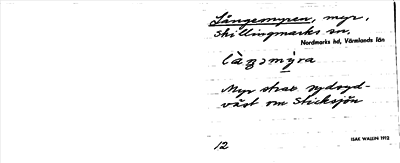 Långemyren, myr,
Skillingmarks sn,
Nordmarks hd, Värmlands län
Myr strax sydsyd-
väst om Sticksjön
ISAK WALLIN 1912
12